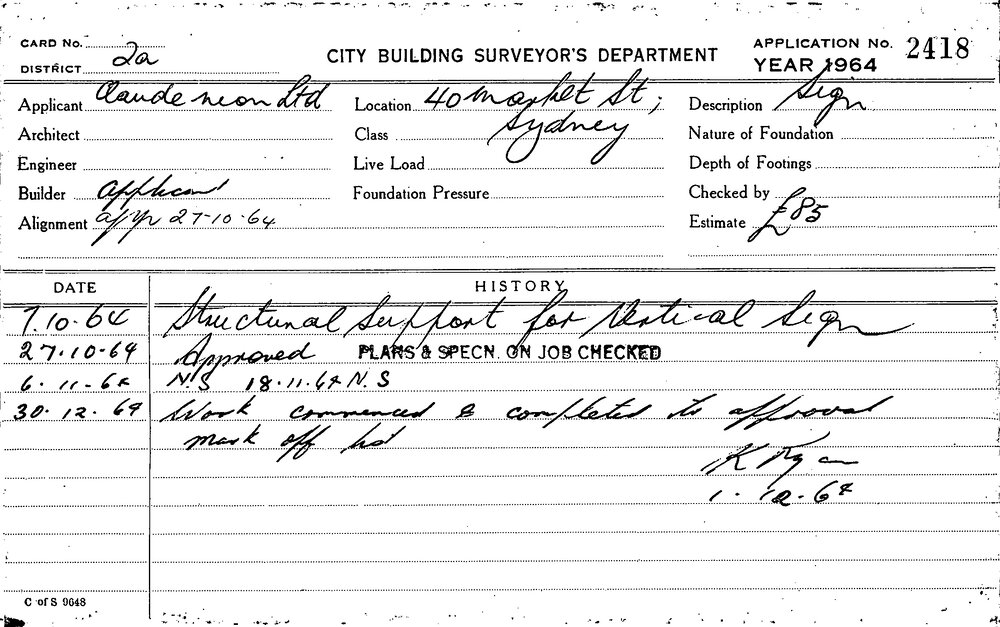 CARD No.
DISTRICT 2a
CITY BUILDING SURVEYOR'S DEPARTMENT
APPLICATION No. 2418
YEAR 1964
Applicant Claude neon Ltd
Location 40 Market St;
Sydney
Description Sign
Architect
Class
Nature of Foundation
Engineer
Live Load
Depth of Footings
Builder Applicant
Foundation Pressure
Checked by
Alignment app 27-10-64
Estimate £85
DATE
HISTORY
7.10.64 Structural Support for Vertical Sign
27.10.64 Approved PLANS & SPECN. ON JOB CHECKED
6.11.64 N.S 18.11.64 N.S
30.12.64 Work commenced & completed to approval
mark off list
K Ryan
1.12.64
C of S 9648